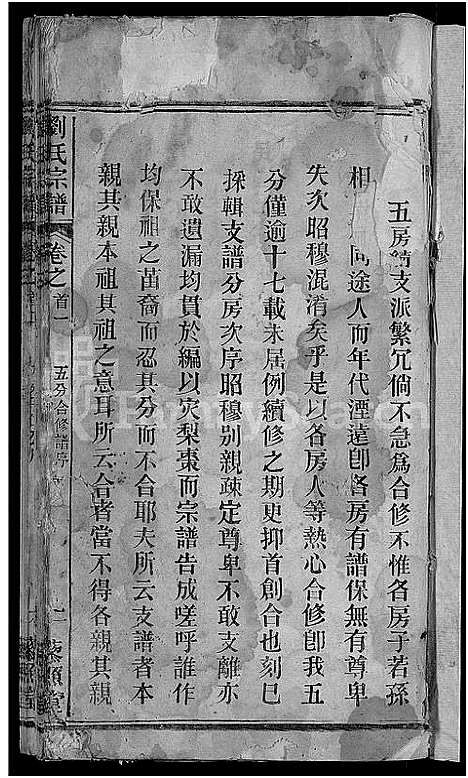 五房精支派繁冗倘不急爲合修不惟各房子若孫
相同途人而年代湮遠卽各房有譜保無有尊卑
失次昭穆混淆矣乎是以各房人等熱心合修卽我五
分僅逾十七載未居例續修之期更抑首創合也刻巳
採輯支譜分房次序昭穆別親疎定尊卑不敢支離亦
不敢遺漏均貫於編以灾梨棗而宗譜告成嗟呼誰作
均保祖之苗裔而忍其分而不合耶夫所云支譜者本
親其親本祖其祖之意耳所云合者當不得各親其親
劉氏宗譜
卷之首一
五分合修譜序
藜照堂